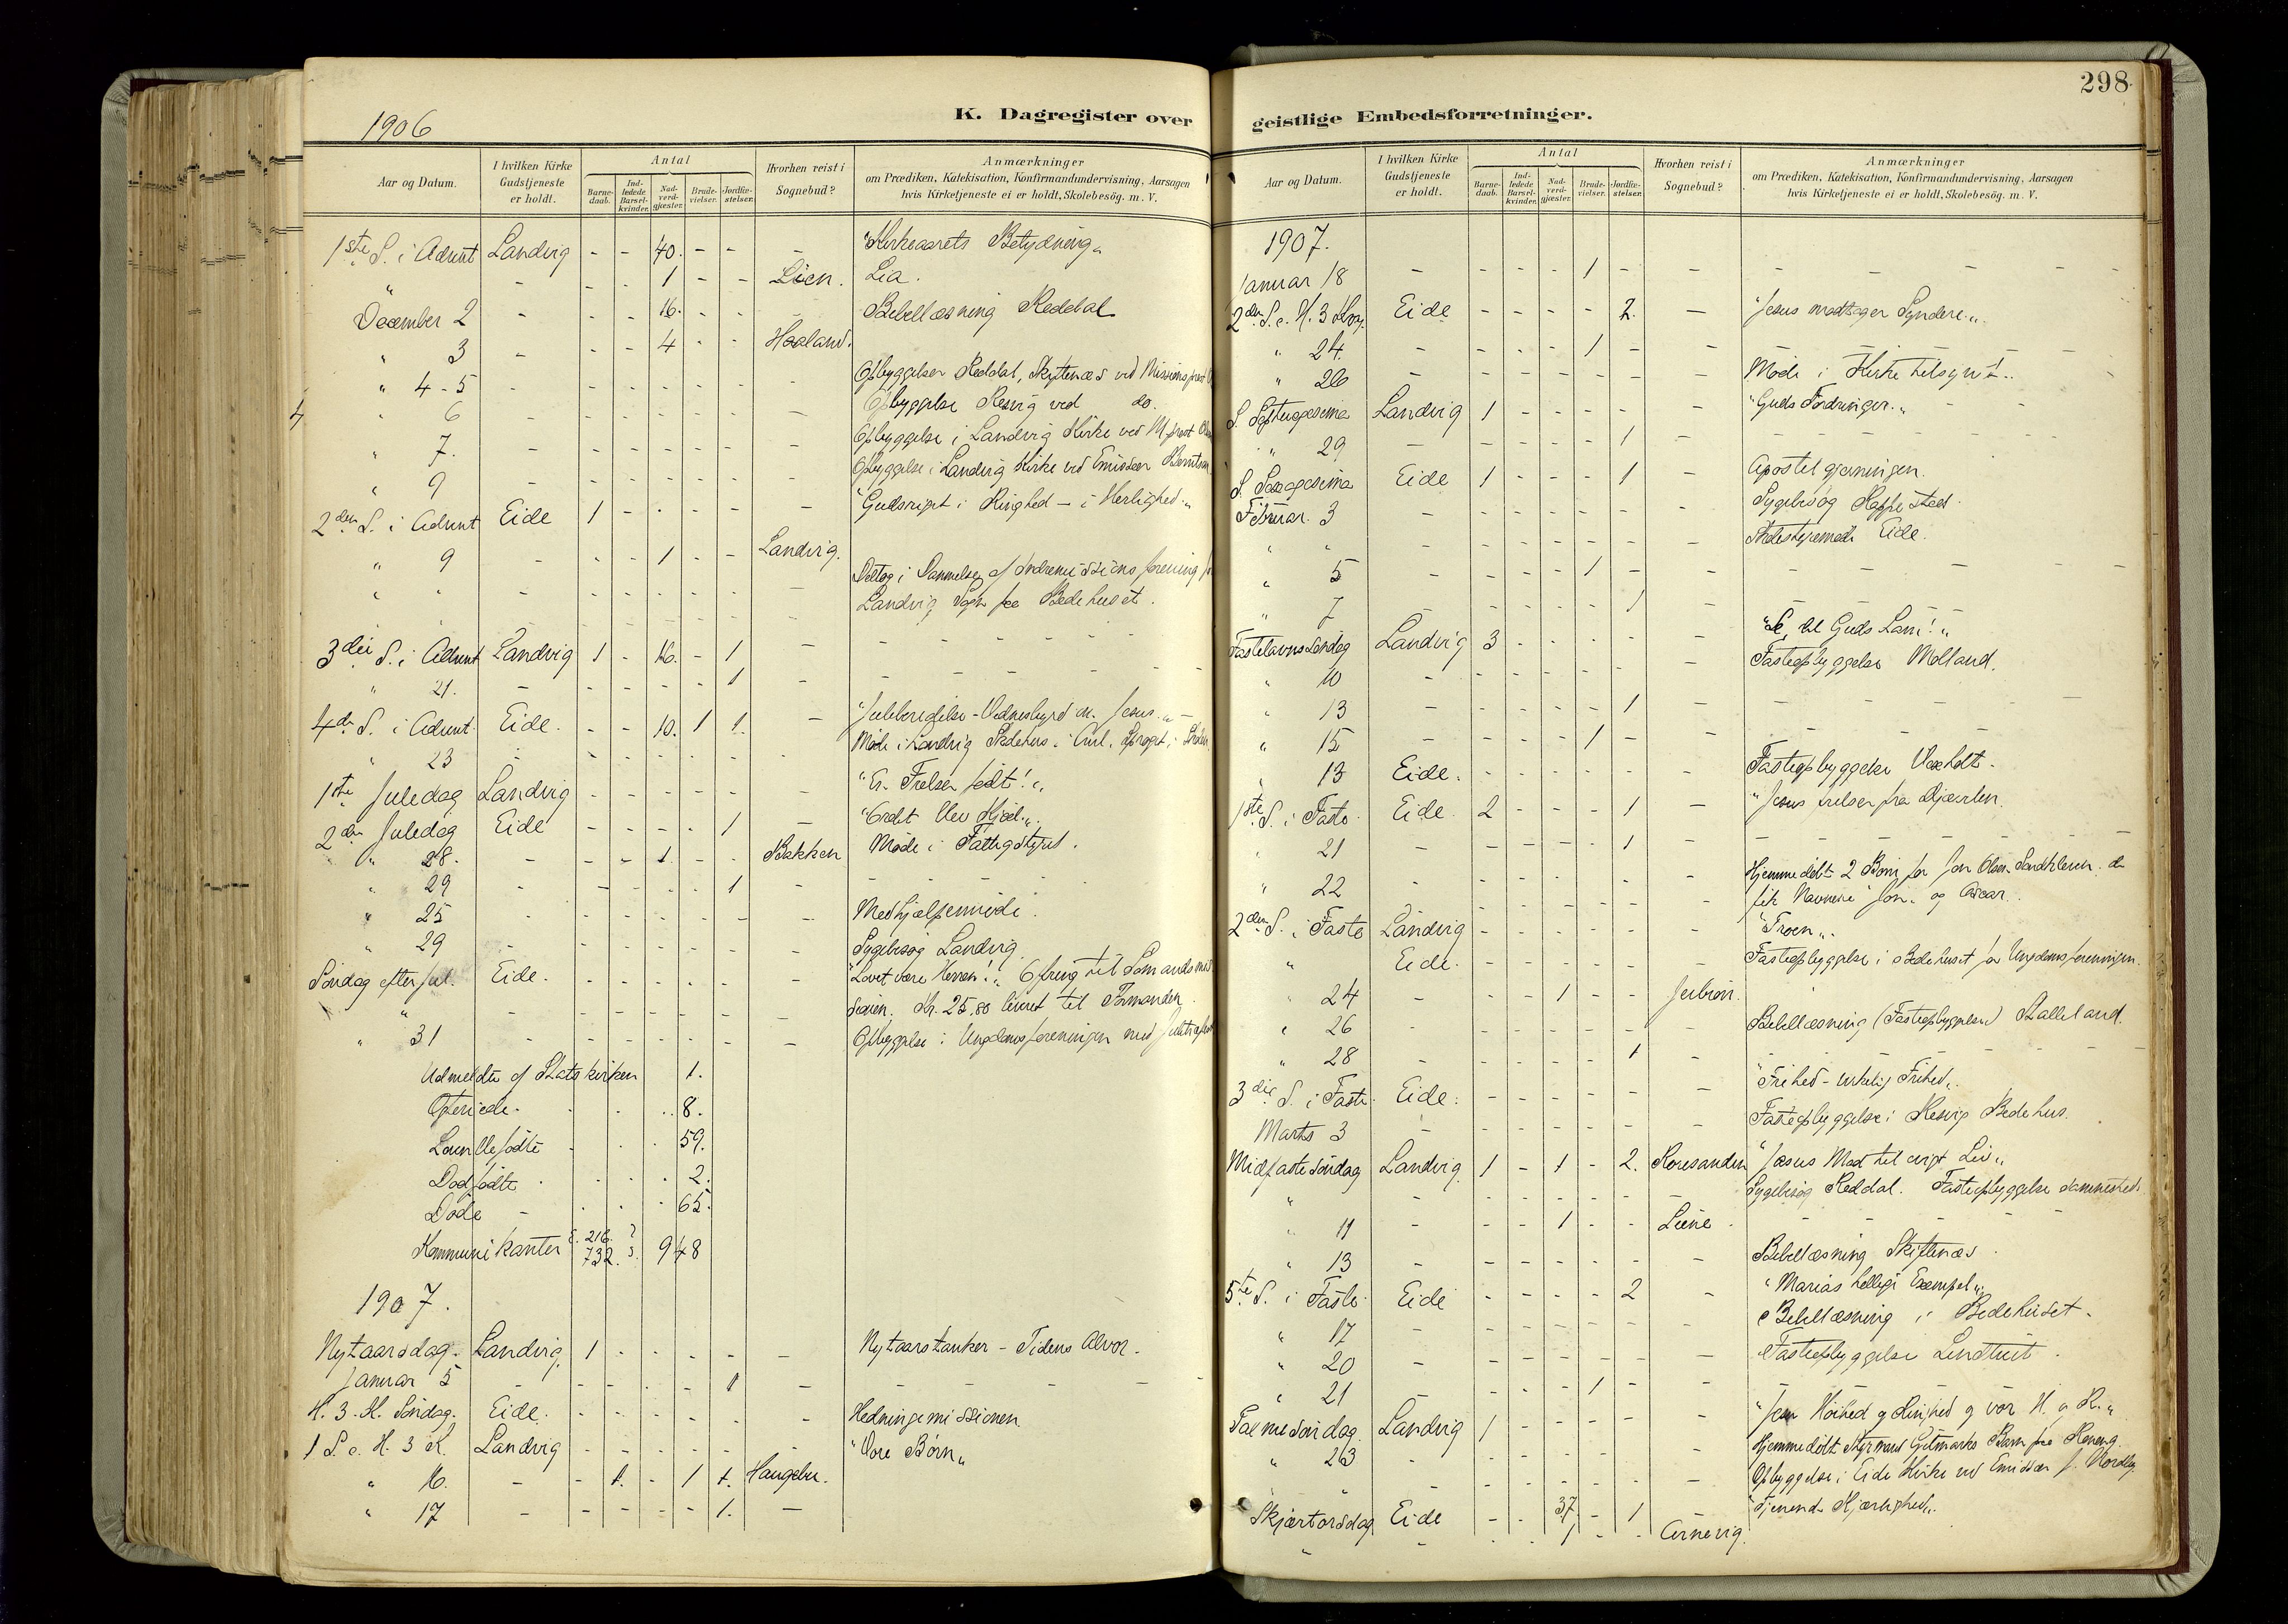 298
1906
K. Dagregister over
geistlige Embedsforretninger.
Aar og Datum.
I hvilken Kirke Gudstjeneste er holdt.
Antal
Barnedaab.
Indledede Barselkvinder.
Nadverdgjæster.
Brudevielser.
Jordfæstelser.
Hvorhen reist i Sognebud?
Anmærkninger
om Prædiken, Katekisation, Konfirmandundervisning, Aarsagen
hvis Kirketjeneste ei er holdt, Skolebesög. m. V.
1ste S. i Advent Landvig - - 40. - - - "Kirkeaarets Betydning"
" - - - 1 - - Lien. Lia.
December 2 - - - 16. - - - Bibellæsning Reddal
" 3 - - - 4 - - Haaland.
" 4-5 - - - - - - - Opbyggelser Reddal, Skiftenæs ved Missionsprest
" 6 - - - - - - - Opbyggelse Resvig ved do.
" 7. - - - - - - - Opbyggelse i Landvig Kirke ved M.prest
" 9 - - - - - - - Opbyggelse i Landvig Kirke ved Emissær Berntsen
2den S. i Advent Eide 1 - - - - - "Gudsriget i Ringhed - i Herlighed."
" 9 - - - 1 - - Landvig.
" " - - - - - - - Deltog i Dannelsen af Indremissionsforening for
Landvig Sogn paa Bedehuset.
3die S. i Advent Landvig 1 - 16. - 1 - -
" 21. - - - - - 1 - -
4de S. i Advent. Eide. - - 10. 1 1. - "Juleberedelse - Vidnesbyrd om Jesus." -
" 23 - - - - - - - Møde i Landvig Skolehus i Anl. Sproget i Skolen
1ste Juledag Landvig - - - - - - "En Frelser født!"
2den Juledag Eide - - - - 1 - "Ordet blev Kjød."
" 28. - - - 1. - - Bakken Møde i Fattigstyret.
" 29 - - - - - 1 - -
" 25 - - - - - - - Medhjælpermøde.
" 29 - - - - - - - Sygebesøg Landvig.
Søndag efter Jul. Eide. - - - - - - "Lovet være Herren!" Ofring til Sømandsmis
" - - - - - - - sionen. Kr. 25,80 leveret til Formanden.
" 31 - - - - - - - Opbyggelse i Ungdomsforeningen med Juletræfest
Udmeldte af Statskirken 1.
8.
Levendefødte 59.
Dødfødte 2.
Døde 65.
Kommunikanter E. 216. L. 732. 948
1907.
Nytaarsdag. Landvig, 1 - - - - - Nytaarstanker - Tidens Alvor.
Januar 5 - - - - - 1 - -
H. 3. K. Søndag. Eide. - - - - - - Hedningemissionen.
1 S. e. H. 3 K. Landvig - - - - - - "Vore Børn"
" 16. - - 1. - 1 1. Haugebu.
" 17 - - - - - 1. -
1907.
Januar 18 - - - - 1 - - -
2den S. e. H. 3 Kong. Eide - - - - 2. - "Jesus modtager Syndere."
" 24. - - - - 1 - - -
" 26 - - - - - - - Møde i Kirketilsynet.
S. Septuagesima Landvig 1 - - - - - "Guds Fordringer."
" 29 - - - - - 1 - -
S. Sexagesima Eide 1 - - - 1 - Apostelgjerningen.
Februar. 3 - - - - - - - Sygebesøg Roppestad.
" " - - - - - - - Skolestyremøde Eide.
" 5 - - - - 1 - - -
" 7 - - - - - 1 - -
Fastelavnssøndag Landvig 3 - - - - - "Se, det Guds Lam!"
" 10 - - - - - - - Fasteopbyggelse Molland.
" 13 - - - - - 1 - -
" 15 - - - - 1 - - -
" 13 Eide. - - - - - - Fasteopbyggelse Vaxholt.
1ste S. i Faste. Eide 2 - - - 1 - "Jesus frelser fra Djævelen.
" 21 - - - - - 1 - -
" 22 - - - - - - - Hjemmedøbt 2 Børn for Jon Olsen Sandkleven. de
fik Navnene Jon. og Oscar.
2den S. i Faste Landvig - - - - - - "Troen".
" Eide. - - - - - - Fasteopbyggelse i Bedehuset for Ungdomsforeningen.
" 24 - - - 1 - -
" 26 - - - - - - - Bibellæsning (Fasteopbyggelse) Stalleland.
" 28 - - - - - 1 - -
3die S. i Faste. Eide. - - - - - - "Frihed - virkelig Frihed".
Marts 3 - - - - - - - Fasteopbyggelse i Resvig Bedehus.
Midfastesøndag Landvig, 1 - 1 - 2. Roresanden "Jesus Mad til evigt Liv"
" - - - - - - - Sygebesøg Reddal. Fasteopbyggelse sammesteds.
" 11 - - - 1 - - Liene -
" 13 - - - - - - - Bibellæsning Skiftenæs.
5te S. i Faste. Eide - - - - 2 - "Marias hellige Exempel".
" 17 - - - - - - - Bibellæsning i Bedehuset.
" 20 - - - - - - - Fasteopbyggelse Lindtveit.
" 21 - - - - 1 - - -
Palmesøndag. Landvig 1 - - - - - "Jesu Høihed og Ringhed og vor H. og R."
" 23 - - - - - - - Hjemmedøbt Styrmand Gitmarks Barn paa
- - - - - - - Opbyggelse i Eide Kirke ved Emissær J. Nordby.
Skjærtorsdag Eide - - 37. - 1 "Tjenende Kjærlighed".
" - - - 1 - - Arnevig.